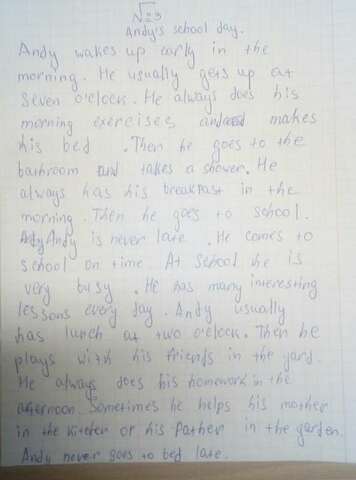 √=3
Andy's school day.
Andy wakes up early in the
morning. He usually gets up at
seven o'clock. He always does his
morning exercises and makes
his bed. Then he goes to the
bathroom and takes a shower. He
always has his breakfast in the
morning. Then he goes to school.
Andy is never late. He comes to
school on time. At school he is
very busy. He has many interesting
lessons every day. Andy usually
has lunch at two o'clock. Then he
plays with his friends in the yard.
He always does his homework in the
afternoon. Sometimes he helps his mother
in the kitchen or his father in the garden.
Andy never goes to bed late.